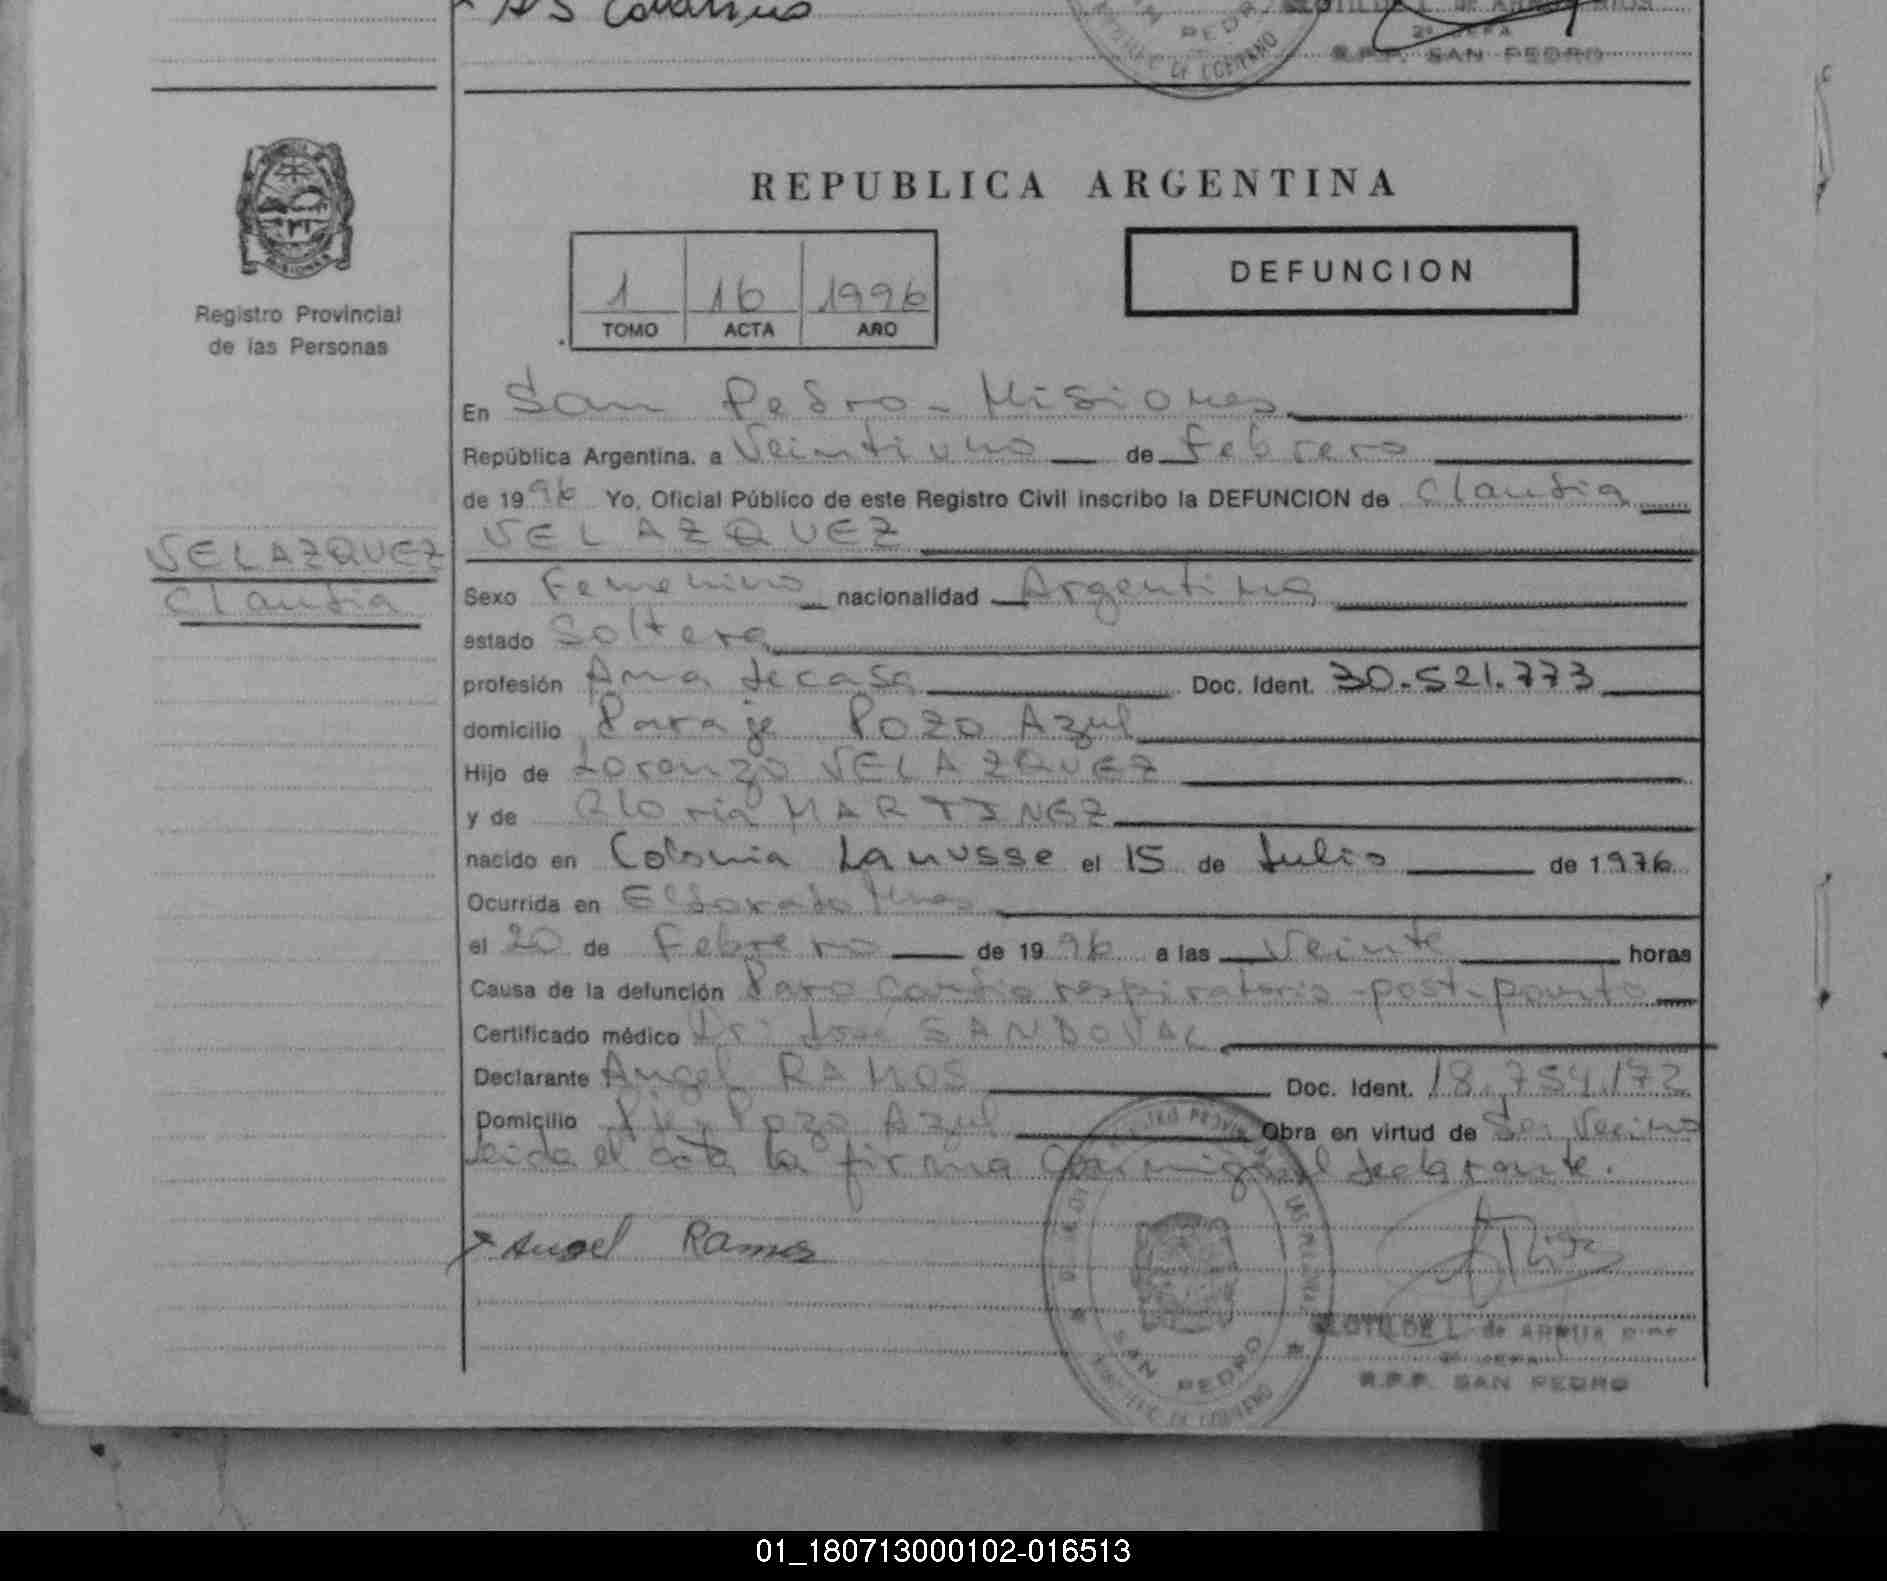 REPUBLICA ARGENTINA
MISIONES
Registro Provincial
de las Personas
1 16 1996
TOMO ACTA AÑO
DEFUNCION
En San Pedro - Misiones
República Argentina, a Veintiuno de Febrero
de 1996 Yo, Oficial Público de este Registro Civil inscribo la DEFUNCION de Claudia
VELAZQUEZ
VELAZQUEZ
Claudia
Sexo Femenino nacionalidad Argentina
estado Soltera
profesión Ama de casa Doc. Ident. 30.521.773
domicilio Paraje Pozo Azul
Hijo de Lorenzo VELAZQUEZ
y de Gloria MARTINEZ
nacido en Colonia Lanusse el 15 de Julio de 1976
Ocurrida en Eldorado Mnes
el 20 de Febrero de 1996 a las Veinte horas
Causa de la defunción Paro Cardio respiratorio post-parto
Certificado médico Dr: José SANDOVAL
Declarante Angel RAMOS Doc. Ident. 18.754.172
Domicilio Pje Pozo Azul Obra en virtud de Ser Vecino
Leida el acta la firma Conmigo el declarante.
Angel Ramos
SAN PEDRO
CLOTILDE L. de
2º JEFA
R.P.P. SAN PEDRO
01_180713000102-016513